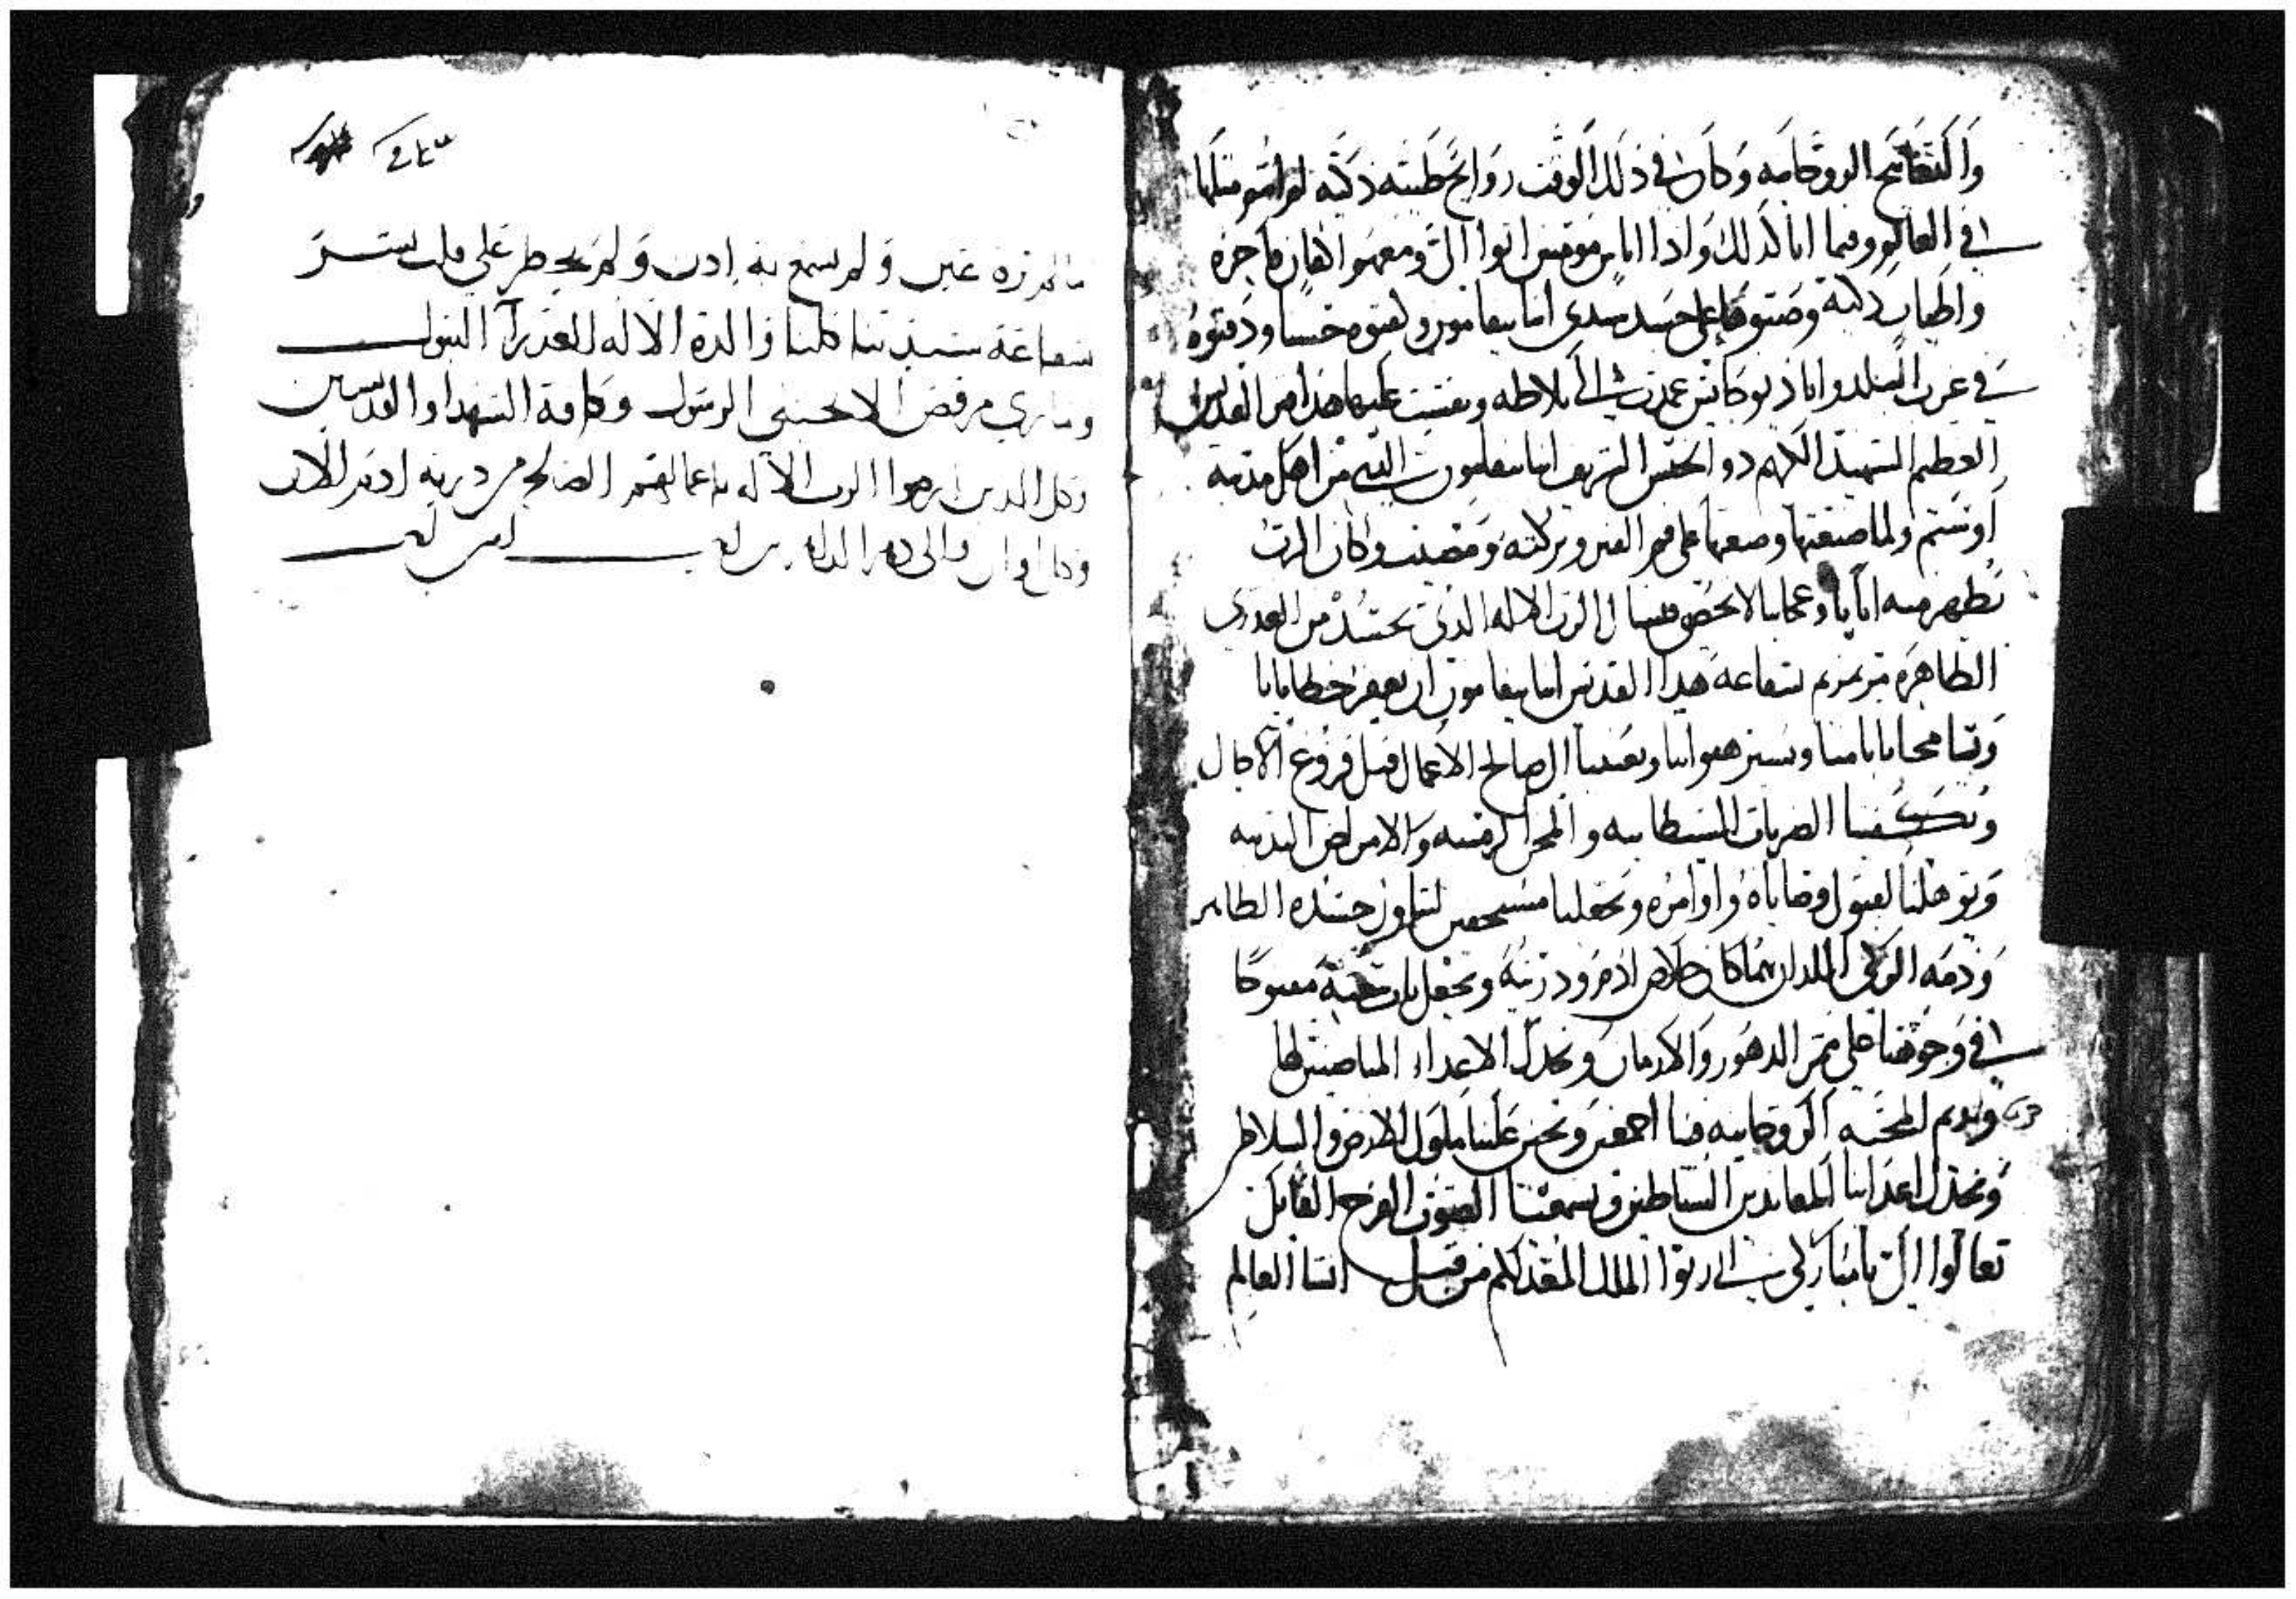 الروحانيه وكان في ذلك الوقت روايح طيبه ذكيه لم اشتم مثلها
في العالم وفيما انا كذلك واذا اناس مومنين اتوا الي ومعهم اكفان فاخره
واطياب ذكيه وضعوها على جسد سيدي انبا بيفامون ولفوه حسنا ودفنوه
في غرب البلد واما ديوجانس عمدت الى بلاطه ونقشت عليها هذا هو القديس
العظيم الشهيد الكريم ذو الجنس الشريف انبا بيفامون الذي من اهل مدينة
اوسيم ولما صنعتها وضعتها على فم القبر وتركته ومضيت وكان الرب
يظهر منه ايات وعجايب لا تحصى فنسال الرب الاله الذي تجسد من العذرى
الطاهره مرتمريم بشفاعة هذا القديس انبا بيفامون ان يغفر خطايانا
ويسامحنا بآثامنا ويستر هفواتنا ويهدينا الى صالح الاعمال قبل فروغ الاجال
ويكفينا الضربات الشيطانيه والمحن الزمنيه والامراض البدنيه
ويوهلنا لقبول وصاياه واوامره ويجعلنا مستحقين لتناول جسده الطاهر
ودمه الزكي اللذان بهما كان خلاص ادم وذريته ويجعل باب بيعته مفتوحا
في وجوهنا على ممر الدهور والازمان ويخذل الاعداء المناصبين لها
ويديم المحبه الروحانيه فينا اجمعين ويحنن علينا ملوك الارض والسلاطين
ويخذل اعدانا المعاندين الشياطين ويسمعنا الصوت الفرح القايل
تعالوا الي يا مباركي ابي رثوا الملك المعد لكم من قبل انشا العالم
ما لم تره عين ولم تسمع به ادن ولم يخطر على قلب بشر
بشفاعة سيدتنا كلنا والدة الاله العذرآ البتول
وماري مرقص الانجيلي الرسول وكافة الشهدا والقديسين
وكل الدين ارضوا الرب الاله باعمالهم الصالحه من درية ادم الان
وكل اوان والى دهر الداهرين امين